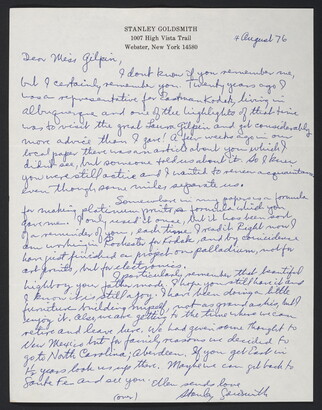 STANLEY GOLDSMITH
1007 High Vista Trail
Webster, New York 14580
4 August 76
Dear Miss Gilpin,
I don't know if you remember me,
but I certainly remember you. Twenty years ago I
was a representative for Eastman Kodak, living in
Albuquerque and one of the highlights of that time
was to visit the great Laura Gilpin and get considerably
more advice than I gave! A few weeks ago in our
local paper there was an article about you which I
didn't see, but someone told us about it. So I knew
you were still active and I wanted to renew acquaintance
even though some miles separate us.
Somewhere in my papers is a formula
for making platinum prints, a formula which you
gave me. I only used it once, but it has been sort
of a reminder of you, each time I read it. Right now I
am working in Rochester for Kodak, and by coincidence
have just finished a project on palladium, not for
art prints, but for electronics.
I particularly remember that beautiful
highboy your father made. I hope you still have it and
I know it is still a joy. I have been doing a little
furniture building myself, not as grand as his, but I
enjoy it. Also we are getting to the time where we can
retire and leave here. We had given some thought to
New Mexico but for family reasons we decided to
go to North Carolina; Aberdeen. If you get East in
1½ years look us up there. Maybe we can get back to
Santa Fe and see you. Ellen sends love
(over) Stanley Goldsmith